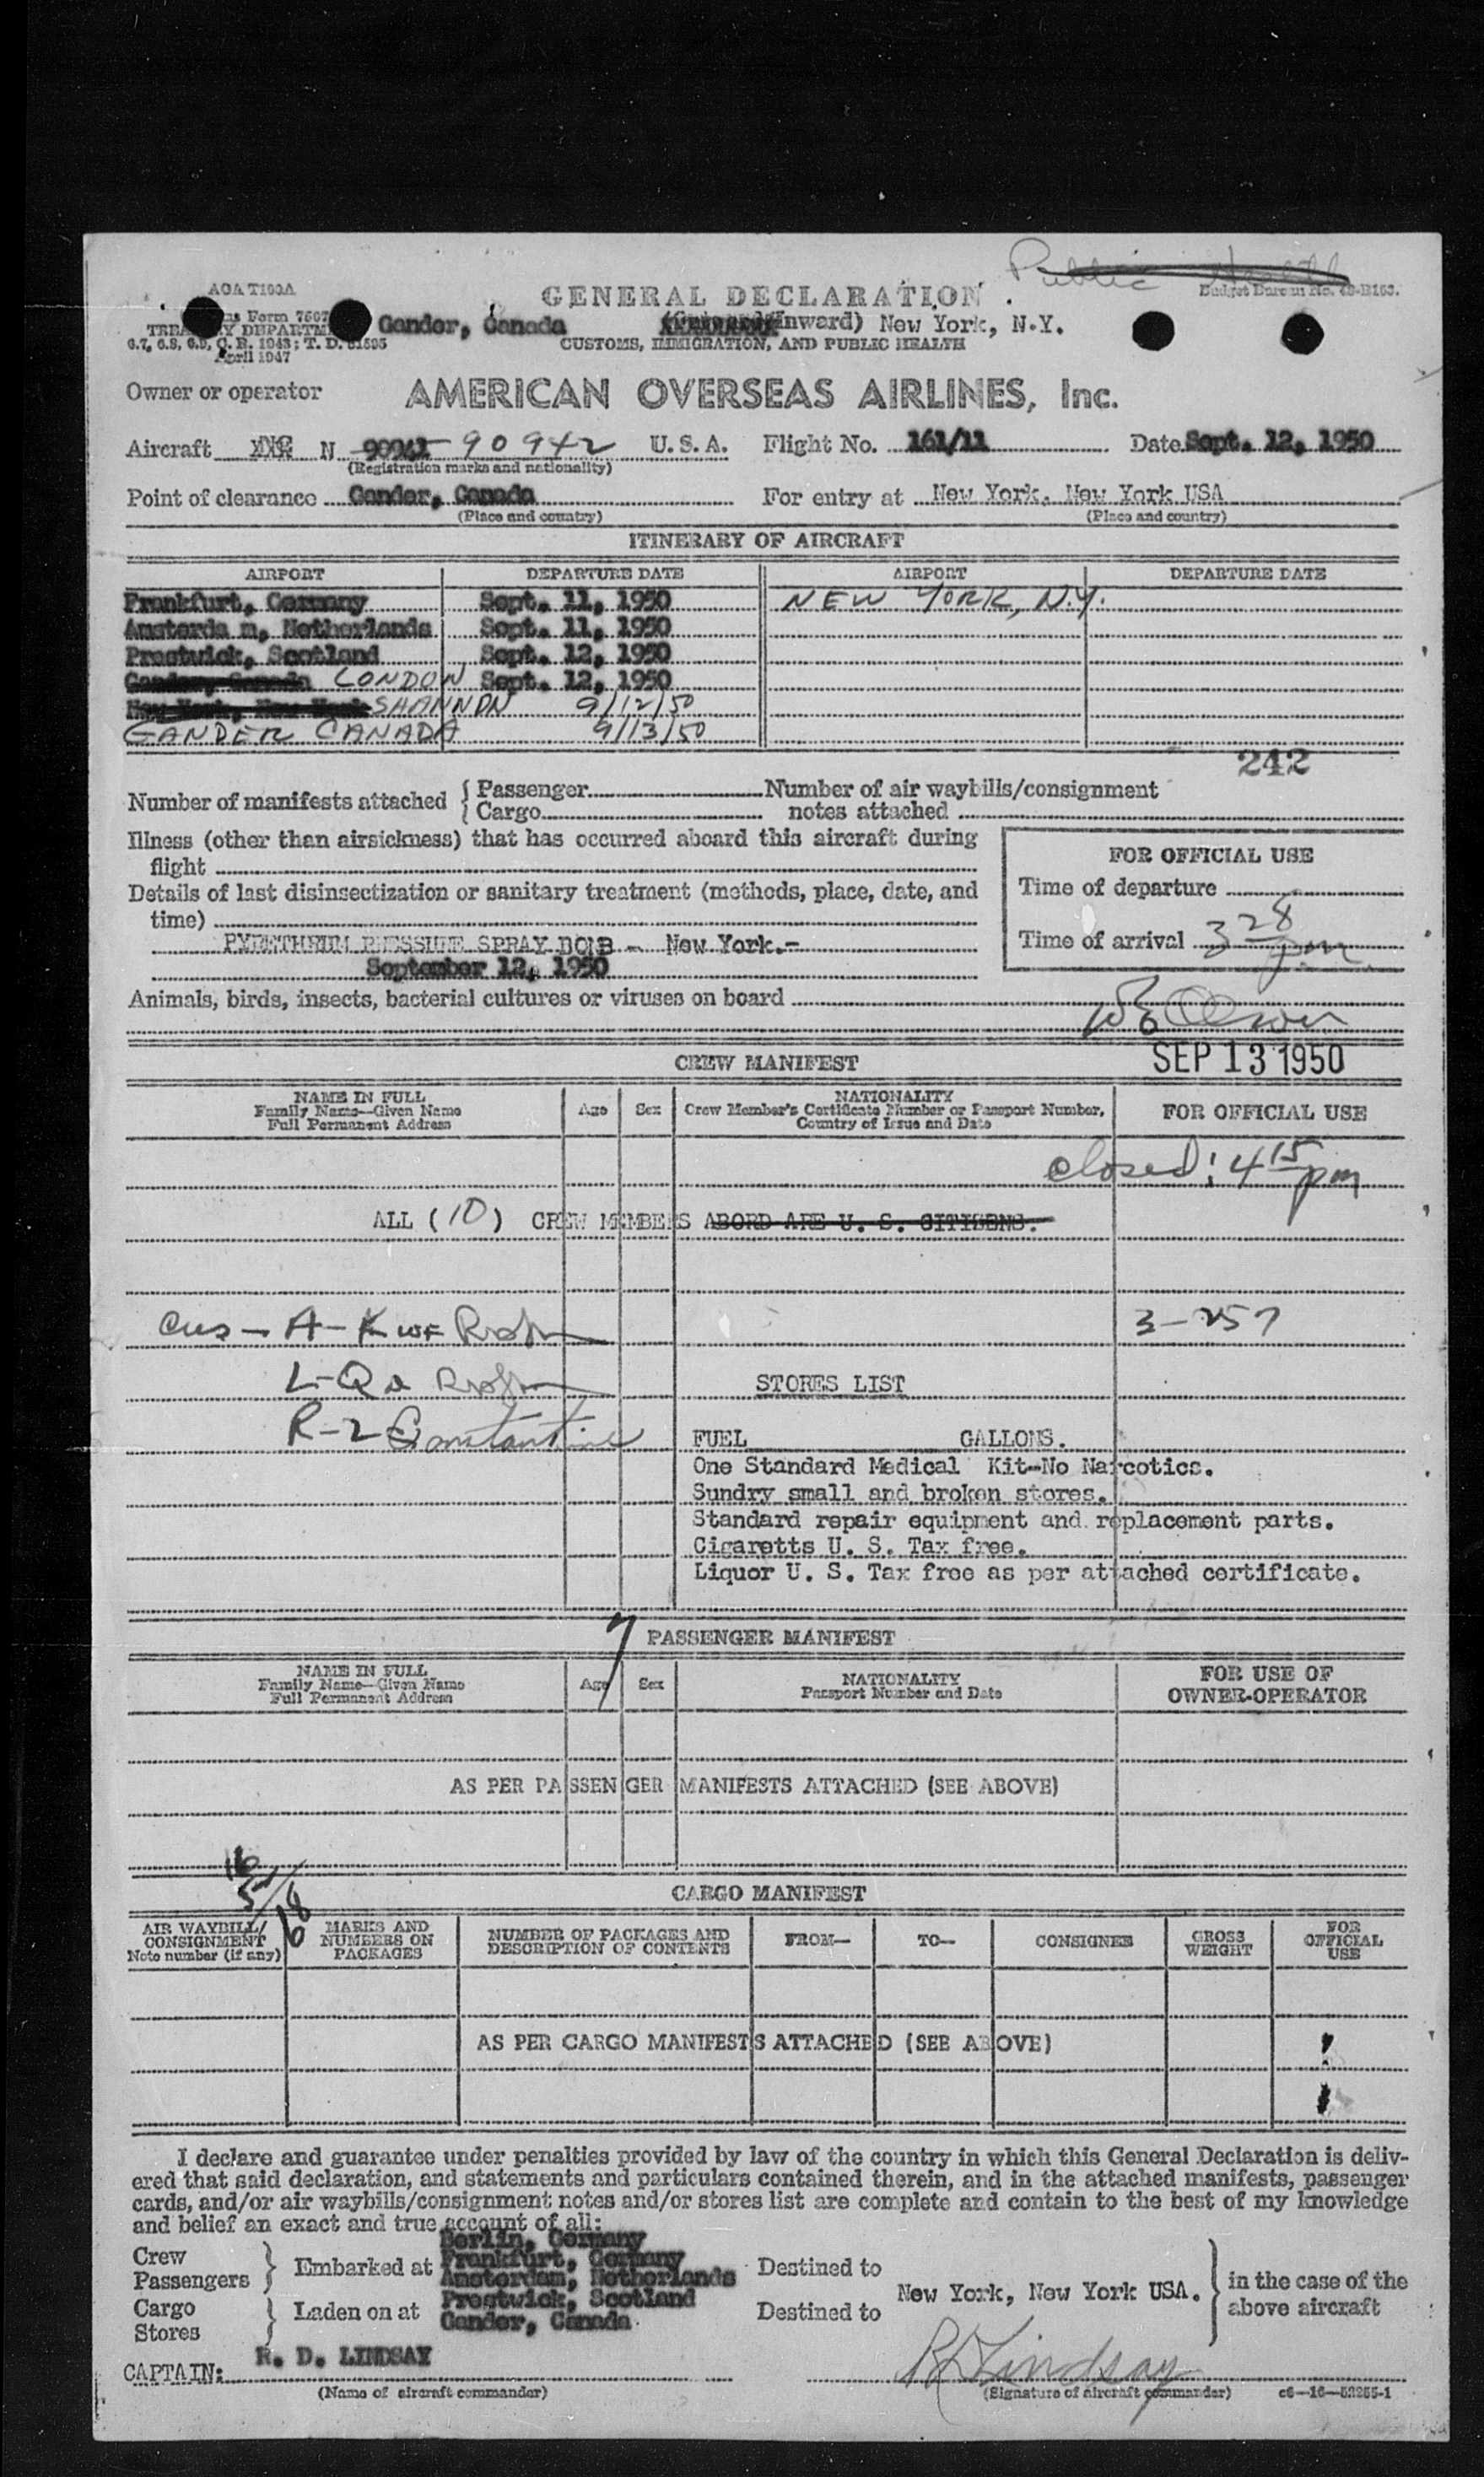 Public Health
AOA T100A
Budget Bureau No. 48-R163.
GENERAL DECLARATION
Form 7507
TREASURY DEPARTMENT
Gander, Canada
Inward) New York, N.Y.
6.7, 6.8, 6.9, C. R. 1943; T. D. 51595
CUSTOMS, IMMIGRATION, AND PUBLIC HEALTH
April 1947
Owner or operator AMERICAN OVERSEAS AIRLINES, Inc.
Aircraft N 90941 90942 U. S. A. Flight No. 161/11 Date Sept. 12, 1950
(Registration marks and nationality)
Point of clearance Gander, Canada For entry at New York, New York USA
(Place and country) (Place and country)
ITINERARY OF AIRCRAFT
AIRPORT DEPARTURE DATE AIRPORT DEPARTURE DATE
Frankfurt, Germany Sept. 11, 1950 NEW YORK, N.Y.
Amsterda m, Netherlands Sept. 11, 1950
Prestwick, Scotland Sept. 12, 1950
Gander, Canada LONDON Sept. 12, 1950
New York, New York SHANNON 9/12/50
GANDER CANADA 9/13/50
242
Number of manifests attached { Passenger Number of air waybills/consignment
Cargo notes attached
Illness (other than airsickness) that has occurred aboard this aircraft during
flight
FOR OFFICIAL USE
Details of last disinsectization or sanitary treatment (methods, place, date, and
Time of departure
time)
PYRETHRUM PRESSURE SPRAY BOMB - New York.-
Time of arrival 3 28 pm
September 12, 1950
Animals, birds, insects, bacterial cultures or viruses on board
SEP 13 1950
CREW MANIFEST
NAME IN FULL
Family Name—Given Name
Full Permanent Address
Age Sex
NATIONALITY
Crew Member's Certificate Number or Passport Number,
Country of Issue and Date
FOR OFFICIAL USE
closed: 4 15 pm
ALL (10) CREW MEMBERS ABORD ARE U. S. CITIZENS.
Cus - A-K
3-257
L-Q
STORES LIST
R-Z Constantine
FUEL GALLONS.
One Standard Medical Kit--No Narcotics.
Sundry small and broken stores.
Standard repair equipment and replacement parts.
Cigaretts U. S. Tax free.
Liquor U. S. Tax free as per attached certificate.
7
PASSENGER MANIFEST
NAME IN FULL
Family Name—Given Name
Full Permanent Address
Age Sex
NATIONALITY
Passport Number and Date
FOR USE OF
OWNER-OPERATOR
AS PER PASSENGER MANIFESTS ATTACHED (SEE ABOVE)
CARGO MANIFEST
AIR WAYBILL/
CONSIGNMENT
Note number (if any)
MARKS AND
NUMBERS ON
PACKAGES
NUMBER OF PACKAGES AND
DESCRIPTION OF CONTENTS
FROM—
TO—
CONSIGNEE
GROSS
WEIGHT
FOR
OFFICIAL
USE
AS PER CARGO MANIFESTS ATTACHED (SEE ABOVE)
I declare and guarantee under penalties provided by law of the country in which this General Declaration is deliv-
ered that said declaration, and statements and particulars contained therein, and in the attached manifests, passenger
cards, and/or air waybills/consignment notes and/or stores list are complete and contain to the best of my knowledge
and belief an exact and true account of all:
Berlin, Germany
Crew
Passengers } Embarked at Frankfurt, Germany
Amsterdam, Netherlands
Destined to
Cargo
Stores } Laden on at Prestwick, Scotland
Gander, Canada
Destined to
New York, New York USA. } in the case of the
above aircraft
R. D. LINDSAY
CAPTAIN: R D Lindsay
(Name of aircraft commander) (Signature of aircraft commander) c6—16—52255-1